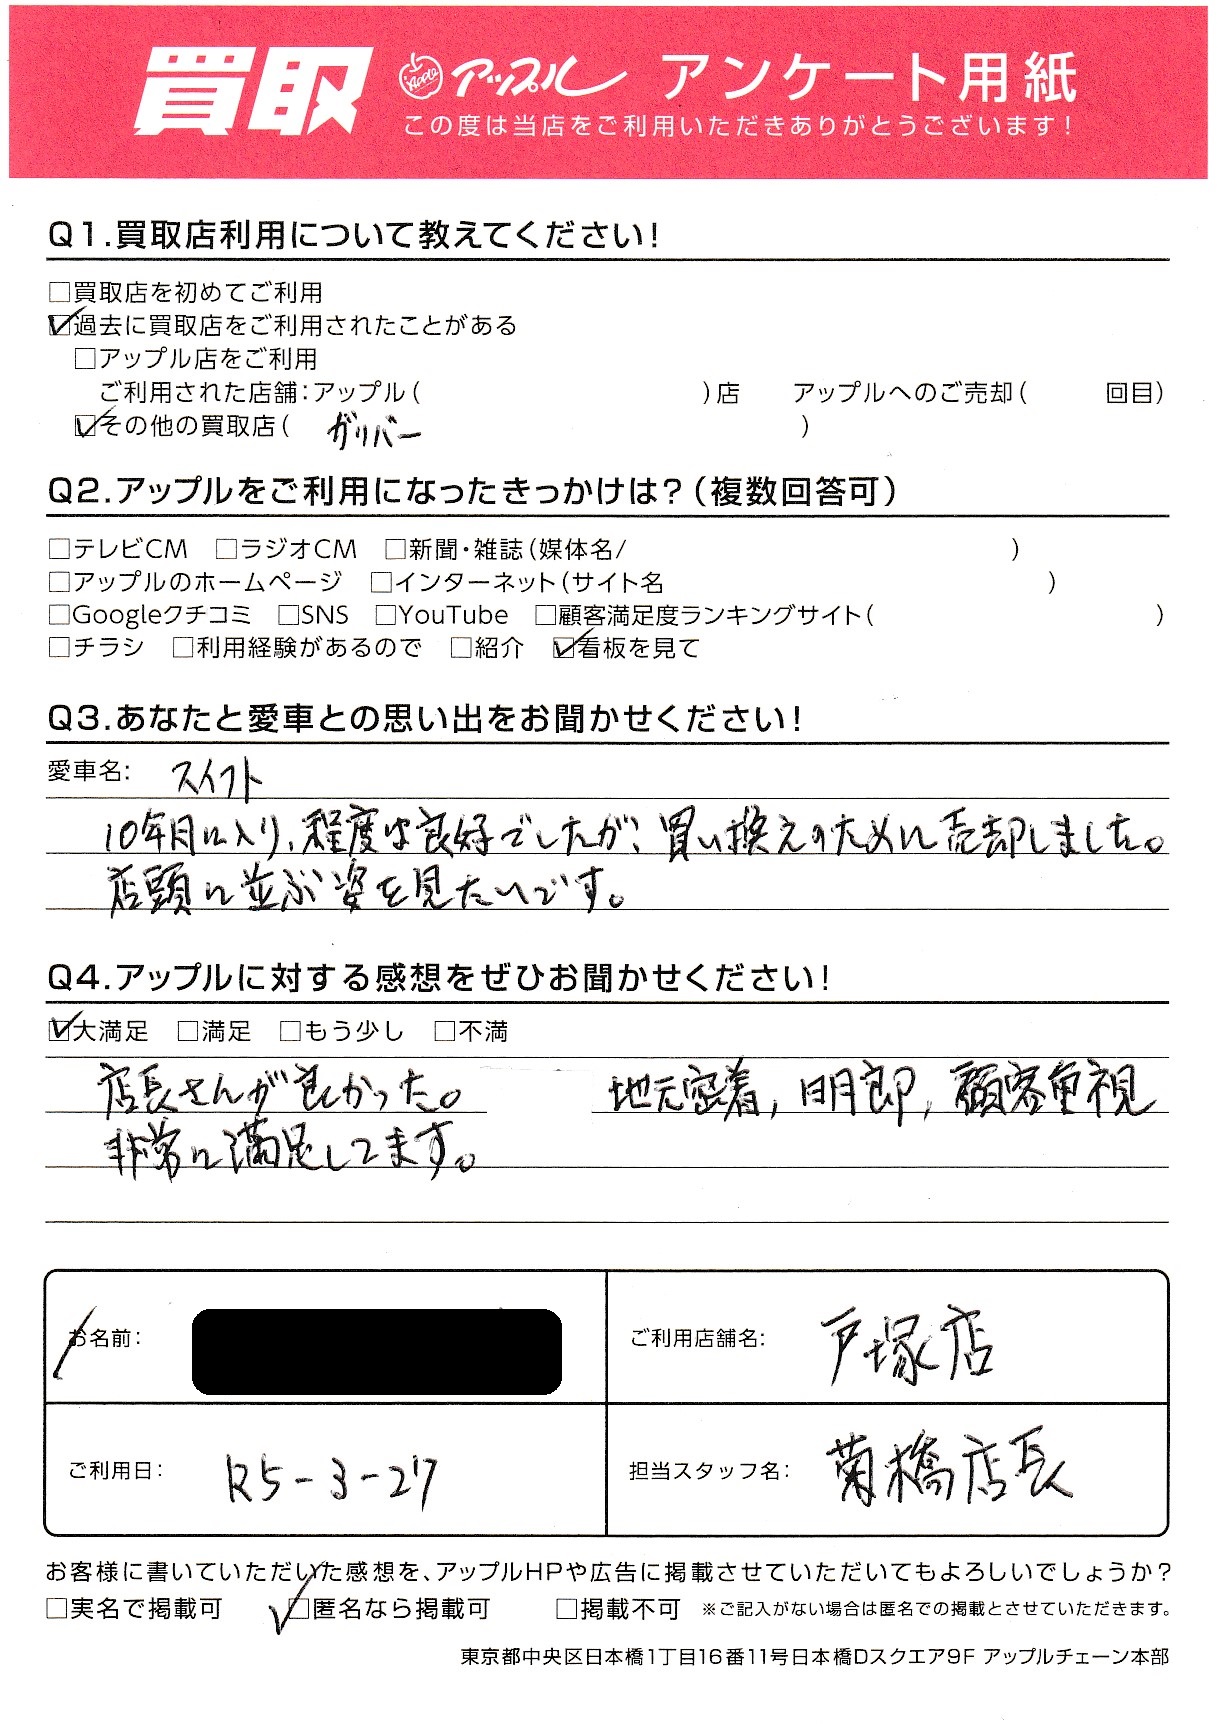 買取 Apple アップル アンケート用紙
この度は当店をご利用いただきありがとうございます!
Q1.買取店利用について教えてください!
□買取店を初めてご利用
☑過去に買取店をご利用されたことがある
□アップル店をご利用
ご利用された店舗:アップル( )店 アップルへのご売却( 回目)
☑その他の買取店( ガリバー )
Q2.アップルをご利用になったきっかけは?(複数回答可)
□テレビCM □ラジオCM □新聞・雑誌(媒体名/ )
□アップルのホームページ □インターネット(サイト名 )
□Googleクチコミ □SNS □YouTube □顧客満足度ランキングサイト( )
□チラシ □利用経験があるので □紹介 ☑看板を見て
Q3.あなたと愛車との思い出をお聞かせください!
愛車名: スイフト
10年目に入り、程度は良好でしたが、買い換えのために売却しました。
店頭に並ぶ姿を見たいです。
Q4.アップルに対する感想をぜひお聞かせください!
☑大満足 □満足 □もう少し □不満
店長さんが良かった。 地元密着, 明朗, 顧客重視
非常に満足してます。
お名前: ご利用店舗名: 戸塚店
ご利用日: R5-3-27 担当スタッフ名: 菊橋店長
お客様に書いていただいた感想を、アップルHPや広告に掲載させていただいてもよろしいでしょうか?
□実名で掲載可 ☑匿名なら掲載可 □掲載不可 ※ご記入がない場合は匿名での掲載とさせていただきます。
東京都中央区日本橋1丁目16番11号日本橋Dスクエア9F アップルチェーン本部